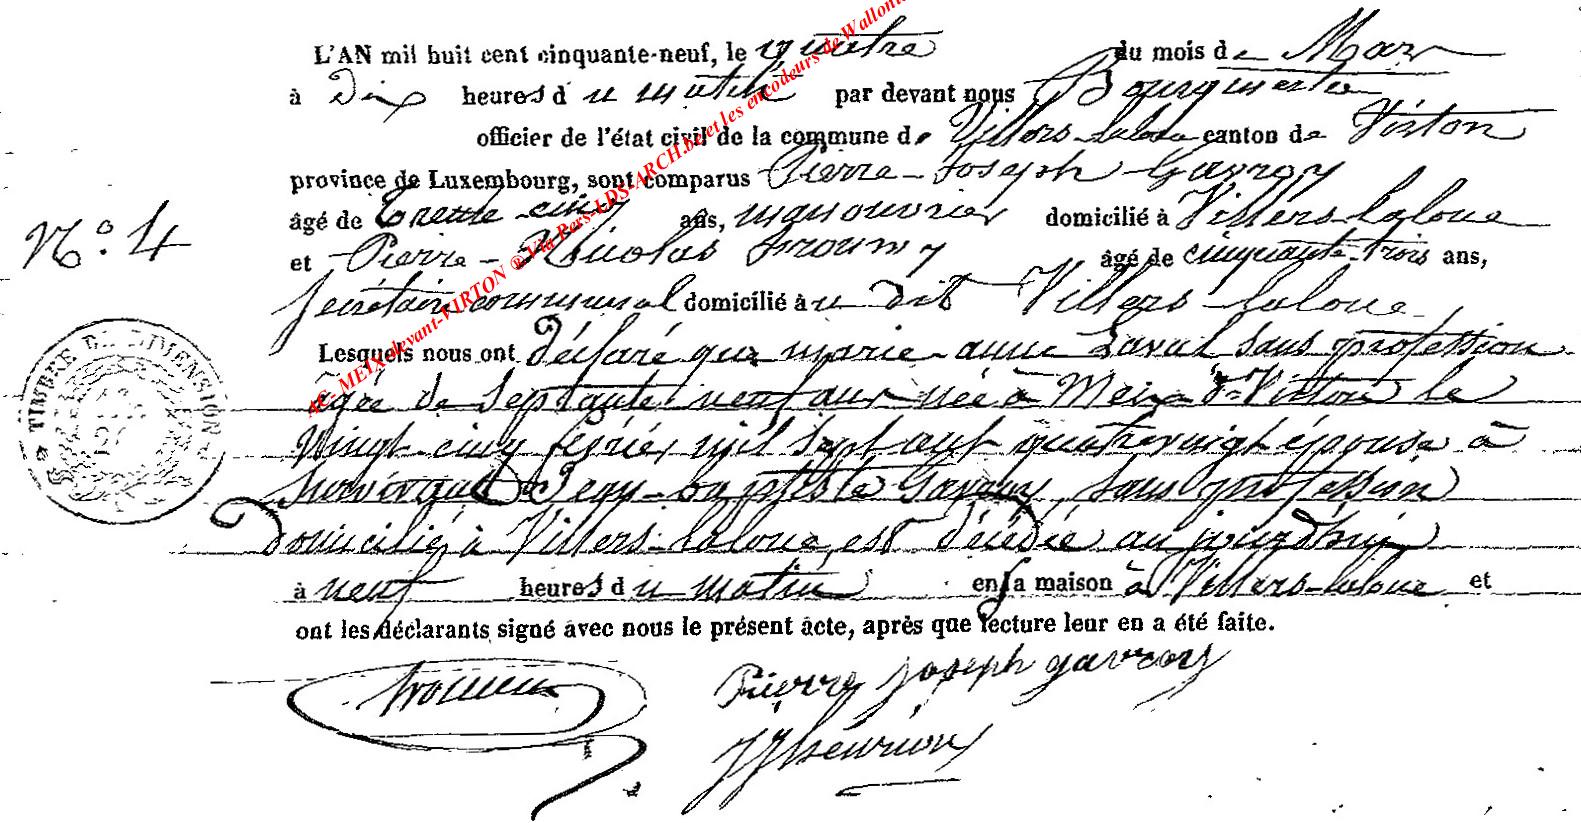 L'AN mil huit cent cinquante-neuf, le quatre du mois de Mars
à Dix heures du matin par devant nous Bourgmestre
officier de l'état civil de la commune de Villers-laloue canton de Virton
province de Luxembourg, sont comparus Pierre-Joseph Gavroy
âgé de trente-cinq ans, manouvrier domicilié à Villers-laloue
N° 4
et Pierre-Nicolas âgé de cinquante-trois ans,
secrétaire communal domicilié à u dit Villers-laloue
Lesquels nous ont déclaré que marie-anne Laval sans profession
âgée de septante neuf ans née à Meix-dt-Virton le
Vingt-cinq février mil sept cent quatrevingt épouse à
survivant Jean-baptiste Gavroy, sans profession
domicilié à Villers-laloue, est décédée aujourd'hui
à neuf heures du matin en sa maison à Villers-laloue et
ont les déclarants signé avec nous le présent acte, après que lecture leur en a été faite.
Pierre joseph gavroy
JJ henrion
TIMBRE DE DIMENSION
4C- MEIX-devant-VIRTON ® Via Pers-LDS-ARCH.be et les encodeurs de Wallonie